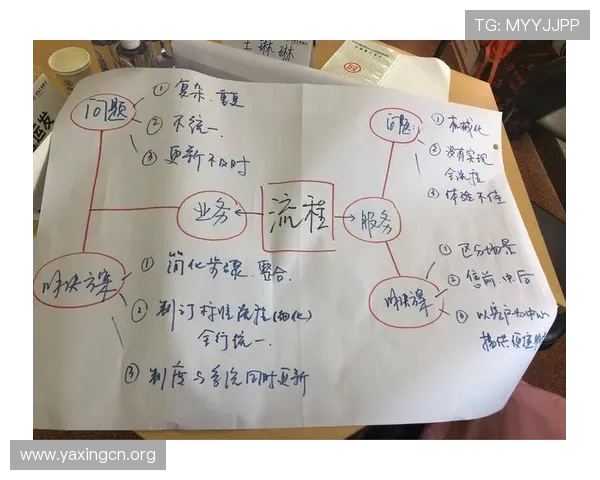 TG: MYYJJPP
王琳琳
流程
业务
问题
① 复杂、重复
② 不统一
③ 更新不及时
解决方案
① 简化步骤、整合
② 制订标准流程(细化)
全行统一
③ 制度与系统同时更新
服务
问题:
① 机械化
② 没有实现
全流程
③ 体验不佳
解决方案
① 区分场景
② 售前、中、后
③ 以客户为中心
提供便捷
www.yaxingcn.org